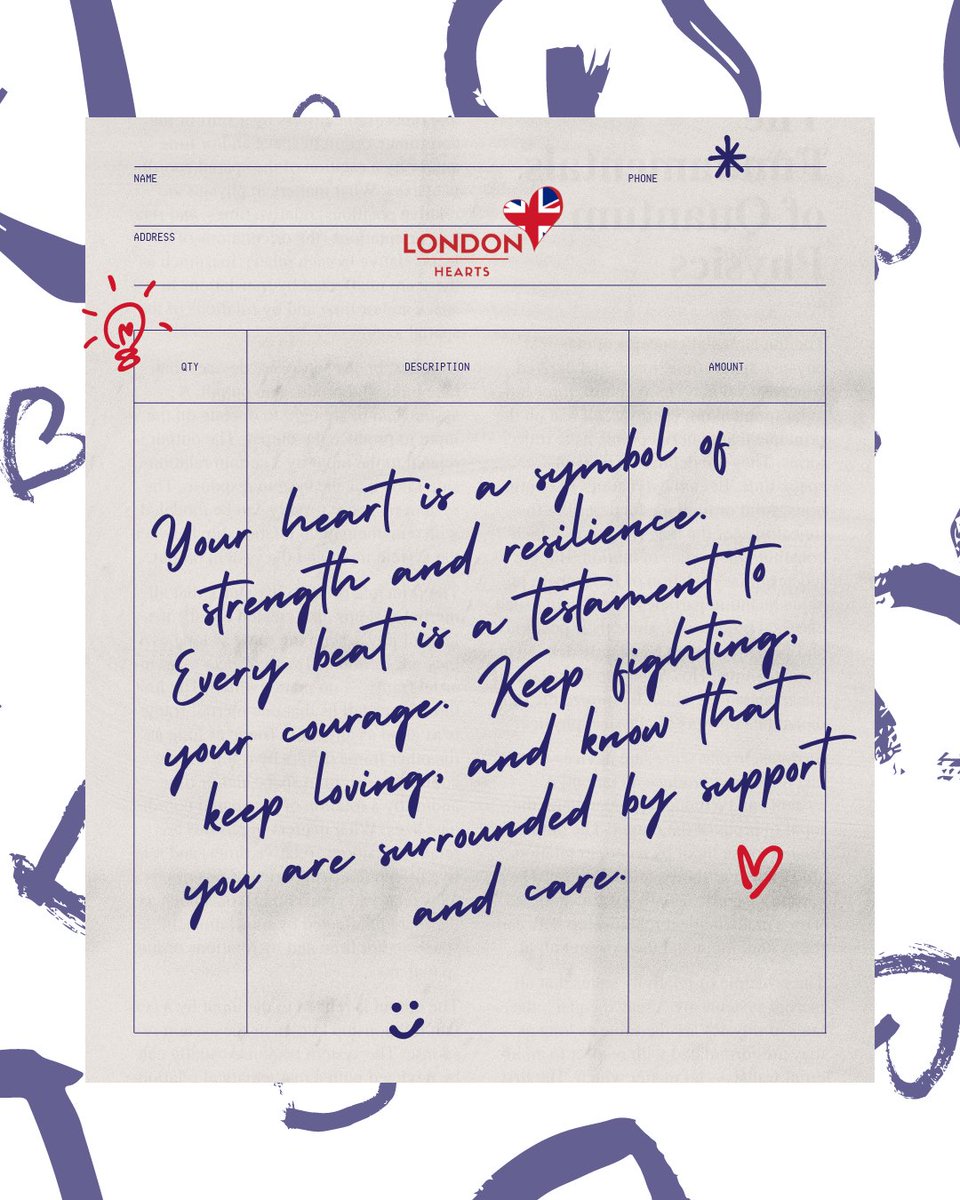 The
Fundamentals
of Quantum
Physics
NAME PHONE
ADDRESS
LONDON
HEARTS
QTY DESCRIPTION AMOUNT
Your heart is a symbol of
strength and resilience.
Every beat is a testament to
your courage. Keep fighting,
keep loving, and know that
you are surrounded by support
and care.